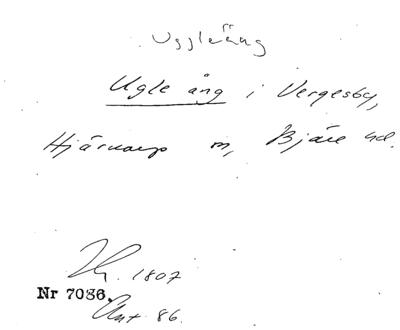 Uggleäng
Ugle äng i Vergesby,
Hjärnarp sn, Bjäre hd.
1807
Nr 7086.
Ant. 86.